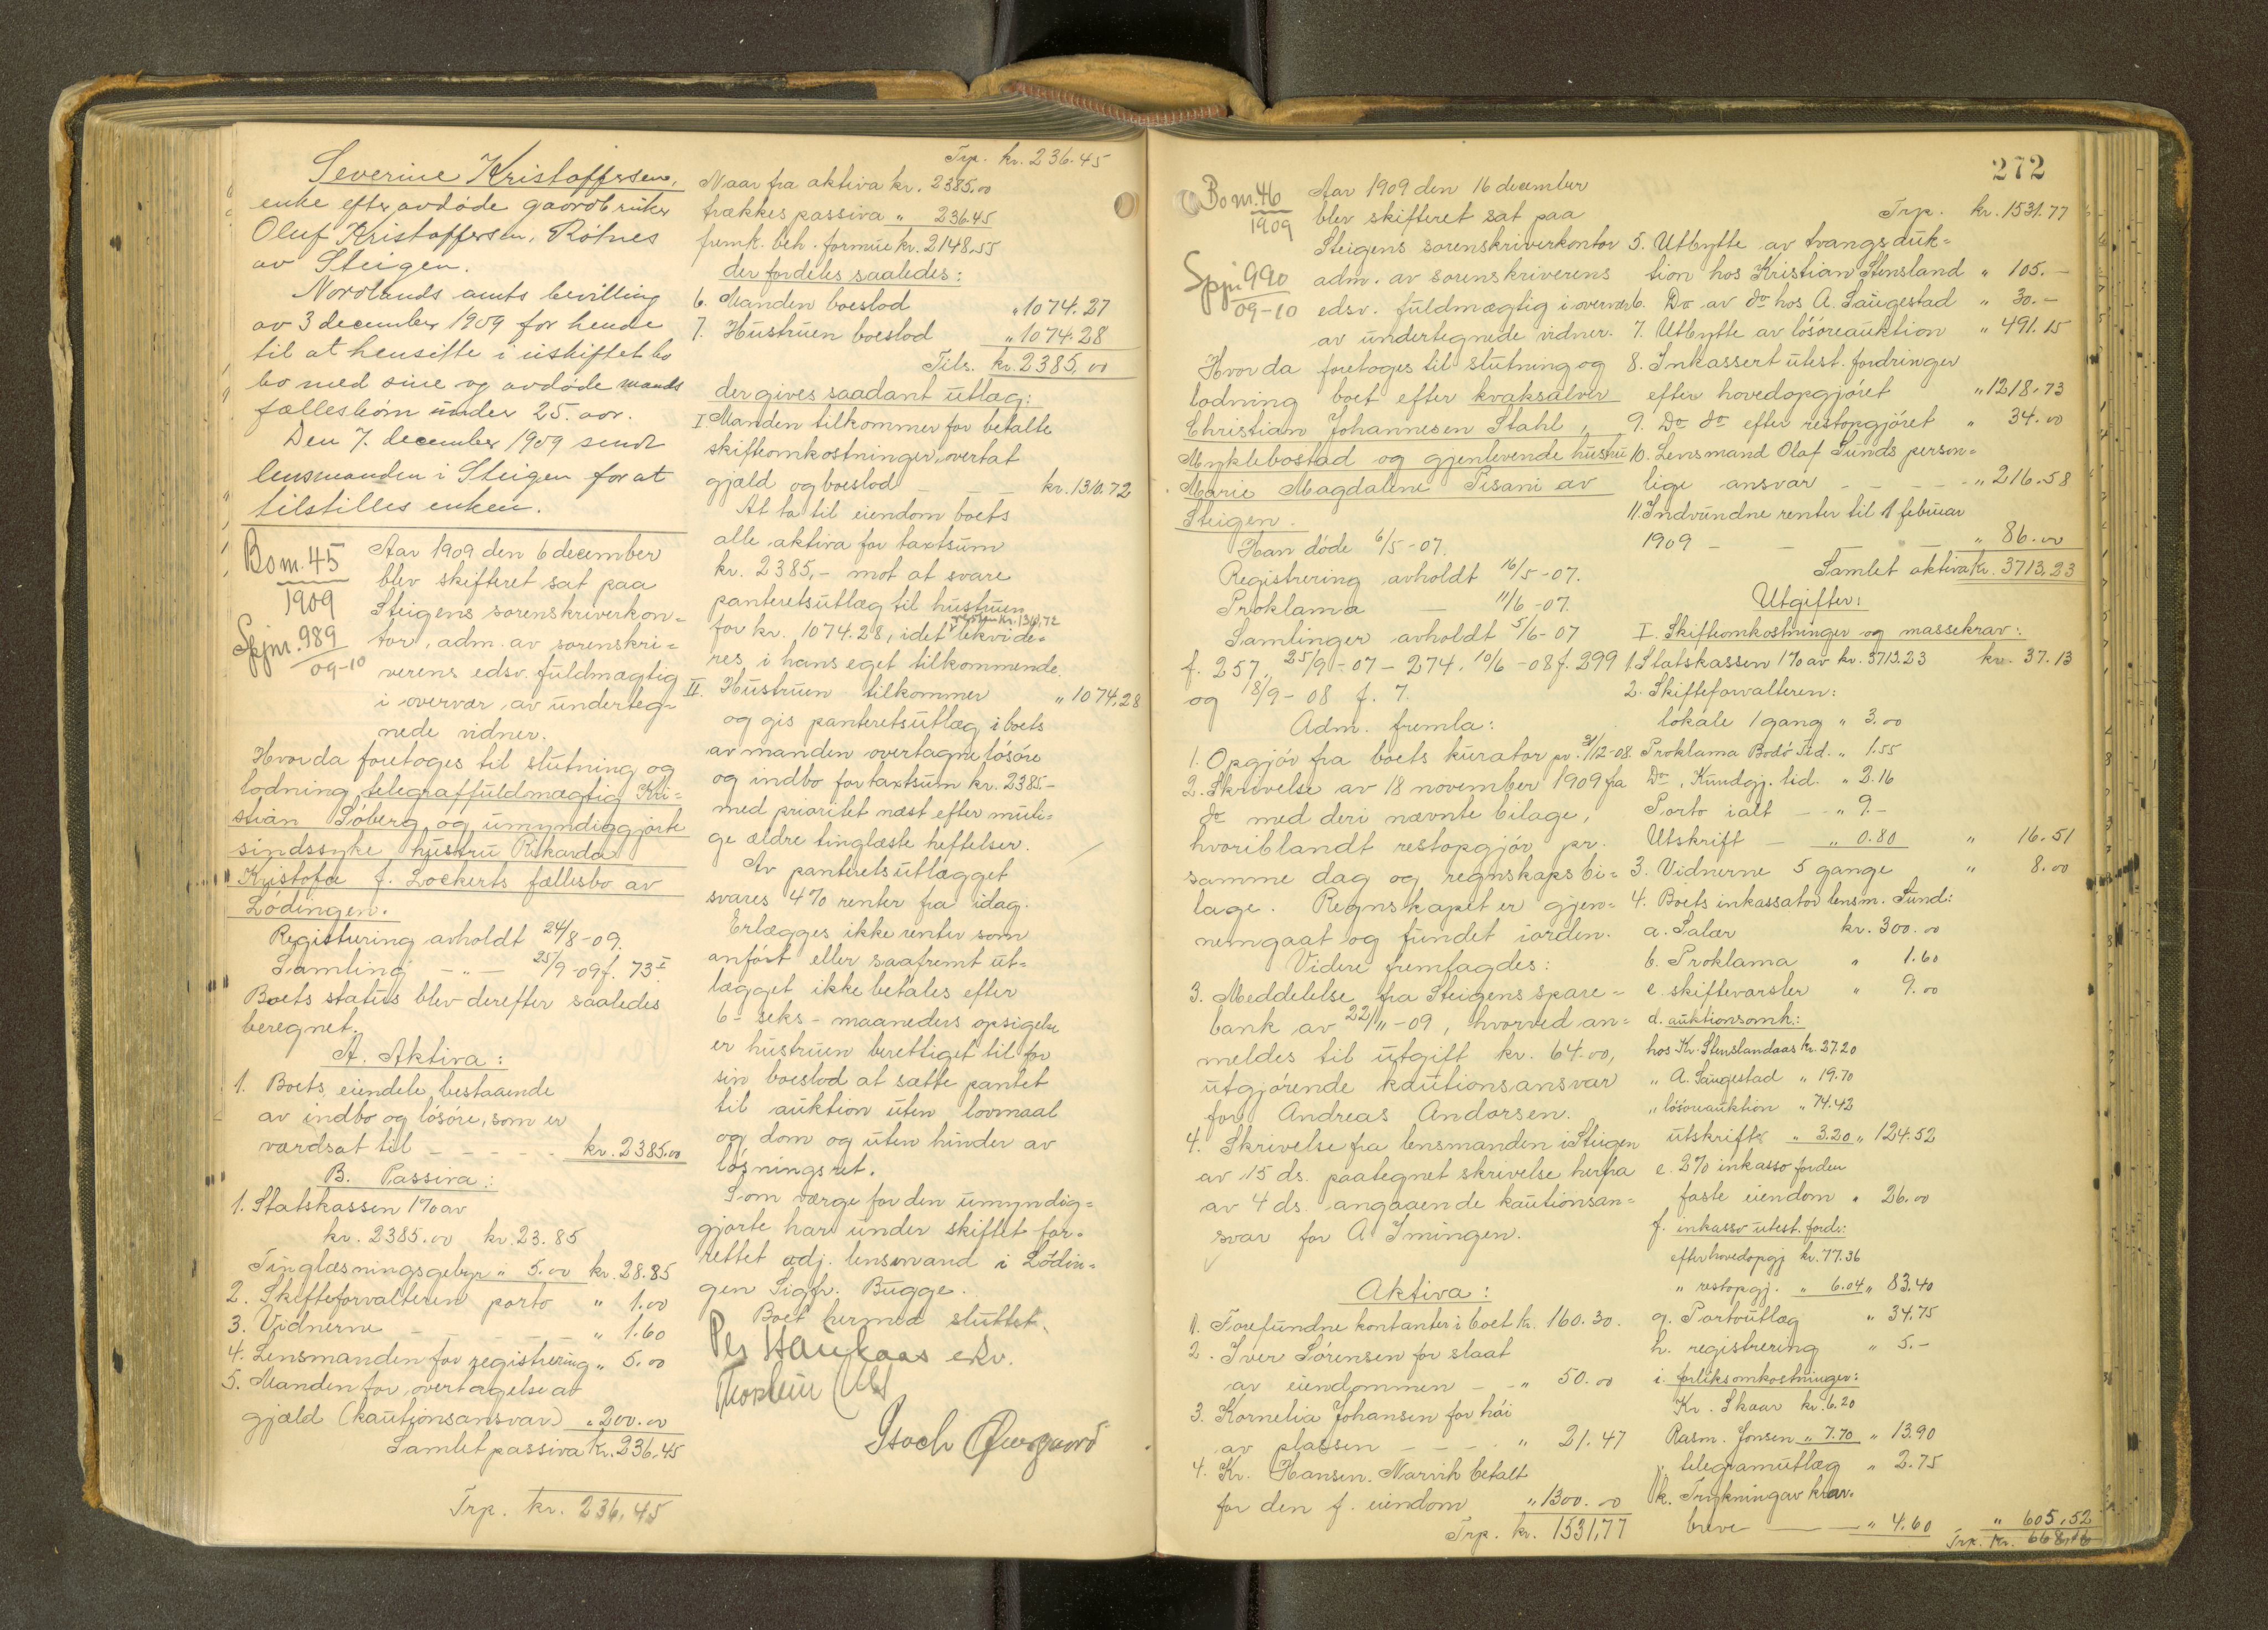 Severine Kristoffersen,
enke efter avdøde gaardbruker
Oluf Kristoffersen, Rötnes
av Steigen.
Nordlands amts bevilling
av 3 december 1909 for hende
til at hensitte i uskiftet bo
bo med sine og avdøde mands
fællesbörn under 25. aar.
Den 7. december 1909 sendt
lensmanden i Steigen for at
tilstilles enken.
Bo m. 45
1909
Spjnr. 989
09-10
Aar 1909 den 6 december
blev skifteret sat paa
Steigens sorenskriverkon-
tor, adm. av sorenskri=
verens edsv. fuldmægtig
i overvær av underteg=
nede vidner.
Hvorda foretoges til slutning og
lodning telegraffuldmægtig Kri=
stian Söberg og umyndiggjorte
sindssyke hustru Rikarda
Kristofa f. Lockerts fællesbo av
Lödingen.
Registrering avholdt 24/8-09.
Samling -"- 25/9-09 f. 73 I
Boets status blev derefter saaledes
beregnet.
A. Aktiva:
1. Boets eiendele bestaaende
av indbo og lösöre, som er
værdsat til - - - - - kr. 2385.00
B. Passiva:
1. Statskassen 1% av
kr. 2385.00 kr. 23.85
Tinglæsningsgebyr " 5.00 kr. 28.85
2. Skifteforvalteren porto " 1.00
3. Vidnerne - - - - " 1.60
4. Lensmanden for registrering " 5.00
5. Manden for overtagelse av
gjæld (kautionsansvar) " 200.00
Samlet passiva kr. 236.45
Trp. kr. 236.45
Trp. kr. 236.45
Naar fra aktiva kr. 2385.00
trækkes passiva " 236.45
fremk. beh. formue kr. 2148.55
der fordeles saaledes:
6. Manden boeslod " 1074.27
7. Hustruen boeslod " 1074.28
Tils. kr. 2385.00
der gives saadant utlæg:
I Manden tilkommer for betalte
skifteomkostninger, overtat
gjæld og boeslod - - - kr. 1310.72
At ta til eiendom boets
alle aktiva for taxtsum
kr. 2385,- mot at svare
panteretsutlæg til hustruen
for kr. 1074.28, idet resten kr. 1310,72 likvide=
res i hans eget tilkommende.
II. Hustruen tilkommer " 1074.28
og gis panteretsutlæg i boets
av manden overtagne lösöre
og indbo for taxtsum kr. 2385.-
med prioritet næst efter muli=
ge ældre tinglæste heftelser.
Av panteretsutlægget
svares 4% renter fra idag.
Erlægges ikke renter som
anfört eller saafremt ut-
lægget ikke betales efter
6 - seks - maaneders opsigelse
er hustruen berettiget til for
sin boeslod at sætte pantet
til auktion uten lovmaal
og dom og uten hinder av
lösningsret.
Som værge for den umyndig=
gjorte har under skiftet for=
rettet adj. lensmand i Lödin=
gen Sigfr. Bugge.
Boet hermed sluttet.
272
Bo m. 46
1909
Spjnr. 990
09-10
Aar 1909 den 16 december
blev skifteret sat paa
Steigens sorenskriverkontor
adm. av sorenskriverens
edsv. fuldmægtig i overvær
av undertegnede vidner.
Hvorda foretoges til slutning og
lodning boet efter kvaksalver
Christian Johannesen Stahl,
Myklebostad og gjenlevende hustru
Marie Magdalene Pisani av
Steigen.
Han döde 6/5-07.
Registrering avholdt 16/5-07.
Proklama - 11/6-07.
Samlinger avholdt 5/6-07
f. 257, 25/9-07 - 274. 10/6-08 f. 299
og 18/9-08 f. 7.
Adm. fremla:
1. Opgjör fra boets kurator pr. 31/12-08.
2. Skrivelse av 18 november 1909 fra
do med deri nævnte bilage,
hvoriblandt restopgjör pr.
samme dag og regnskapsbi=
lage. Regnskapet er gjen=
nemgaat og fundet iorden.
Videre fremlagdes:
3. Meddelelse fra Steigens spare=
bank av 22/11-09, hvorved an=
meldes til utgift kr. 64.00,
utgjörende kautionsansvar
for Andreas Andorsen.
4. Skrivelse fra lensmanden i Steigen
av 15 ds. paategnet skrivelse herfra
av 4 ds. angaaende kautionsan=
svar for A Imingen.
Aktiva:
1. Forefundne kontanter i boet kr. 160.30.
2. Iver Sörensen for slaat
av eiendommen - - " 50.00
3. Kornelia Johansen for höi
av plassen - - - - " 21.47
4. Kr. Hansen. Narvik betalt
for den f. eiendom " 1300.00
Trp. kr. 1531,77
Trp. kr. 1531.77
5. Utbytte av tvangsauk=
tion hos Kristian Stensland " 105.-
6. Do av do hos A. Saugestad " 30.-
7. Utbytte av lösöreauktion " 491.15
8. Inkassert utest. fordringer
efter hovedopgjöret " 1218.73
9. Do do efter restopgjöret " 34.00
10. Lensmand Olaf Sunds person=
lige ansvar - - - - " 216.58
11. Indvundne renter til 1 februar
1909 - - - " 86.00
Samlet aktiva kr. 3713,23
Utgifter:
I. Skifteomkostninger og massekrav:
1. Statskassen 1% av kr. 3713.23 kr. 37.13
2. Skifteforvalteren:
lokale 1 gang " 3.00
Proklama Bodö Tid. " 1.55
Do, Kundgj. tid. " 2.16
Porto ialt - - " 9.-
Utskrift - " 0.80 " 16.51
3. Vidnerne 5 gange " 8.00
4. Boets inkassator lensm. Sund:
a. Salær kr. 300.00
b. Proklama " 1.60
c. skiftevarsler " 9.00
d. auktionsomk.:
hos Kr. Stenslandaas kr. 27.20
" A. Saugestad " 19.70
" lösöreauktion " 74.42
utskrift " 3.20 " 124.52
e. 2% inkasso for den
faste eiendom " 26.00
f. inkasso utest. ford.:
efter hovedopgj kr. 77.36
" restopgj. " 6.04 " 83.40
g. Portoutlæg " 34.75
h. registrering " 5.-
i. forliksomkostninger:
Kr. Skaar kr. 6.20
Rasm. Jonsen " 7.70 " 13.90
j. telegramutlæg " 2.75
k. Trykning av krav-
breve - - " 4.60 " 605,52
Trp. kr. 668,16